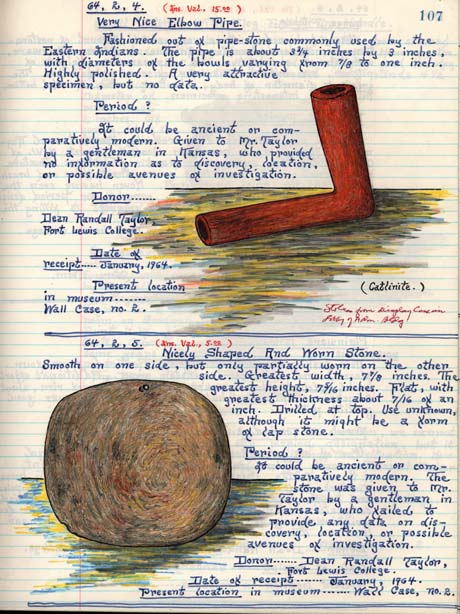 107
64, 2, 4. (Ins. Val., 15.00)
Very Nice Elbow Pipe.
Fashioned out of pipe-stone commonly used by the
Eastern Indians. The pipe is about 3¾ inches by 3 inches,
with diameters of the bowls varying from 7/8 to one inch.
Highly polished. A very attractive
specimen, but no data.
Period?
It could be ancient or com-
paratively modern. Given to Mr. Taylor
by a gentleman in Kansas, who provided
no information as to discovery, location,
or possible avenues of investigation.
Donor-------
Dean Randall Taylor
Fort Lewis College.
Date of
receipt---- January, 1964.
Present location
in museum-------
Wall Case, no. 2.
(Catlinite.)
Stolen from Display Case in
Lobby of Adm. Bldg
64, 2, 5. (Ins. Val., 5.00)
Nicely Shaped And Worn Stone.
Smooth on one side, but only partially worn on the other
side. Greatest width, 7 7/8 inches. The
greatest height, 7 4/16 inches. Flat, with
greatest thickness about 7/16 of an
inch. Drilled at top. Use unknown,
although it might be a form
of lap stone.
Period?
It could be ancient or com-
paratively modern. The
stone was given to Mr.
Taylor by a gentleman in
Kansas, who failed to
provide any data on dis-
covery, location, or possible
avenues of investigation.
Donor----- Dean Randall Taylor,
Fort Lewis College.
Date of receipt------- January, 1964.
Present location in museum------ Wall Case, no. 2.